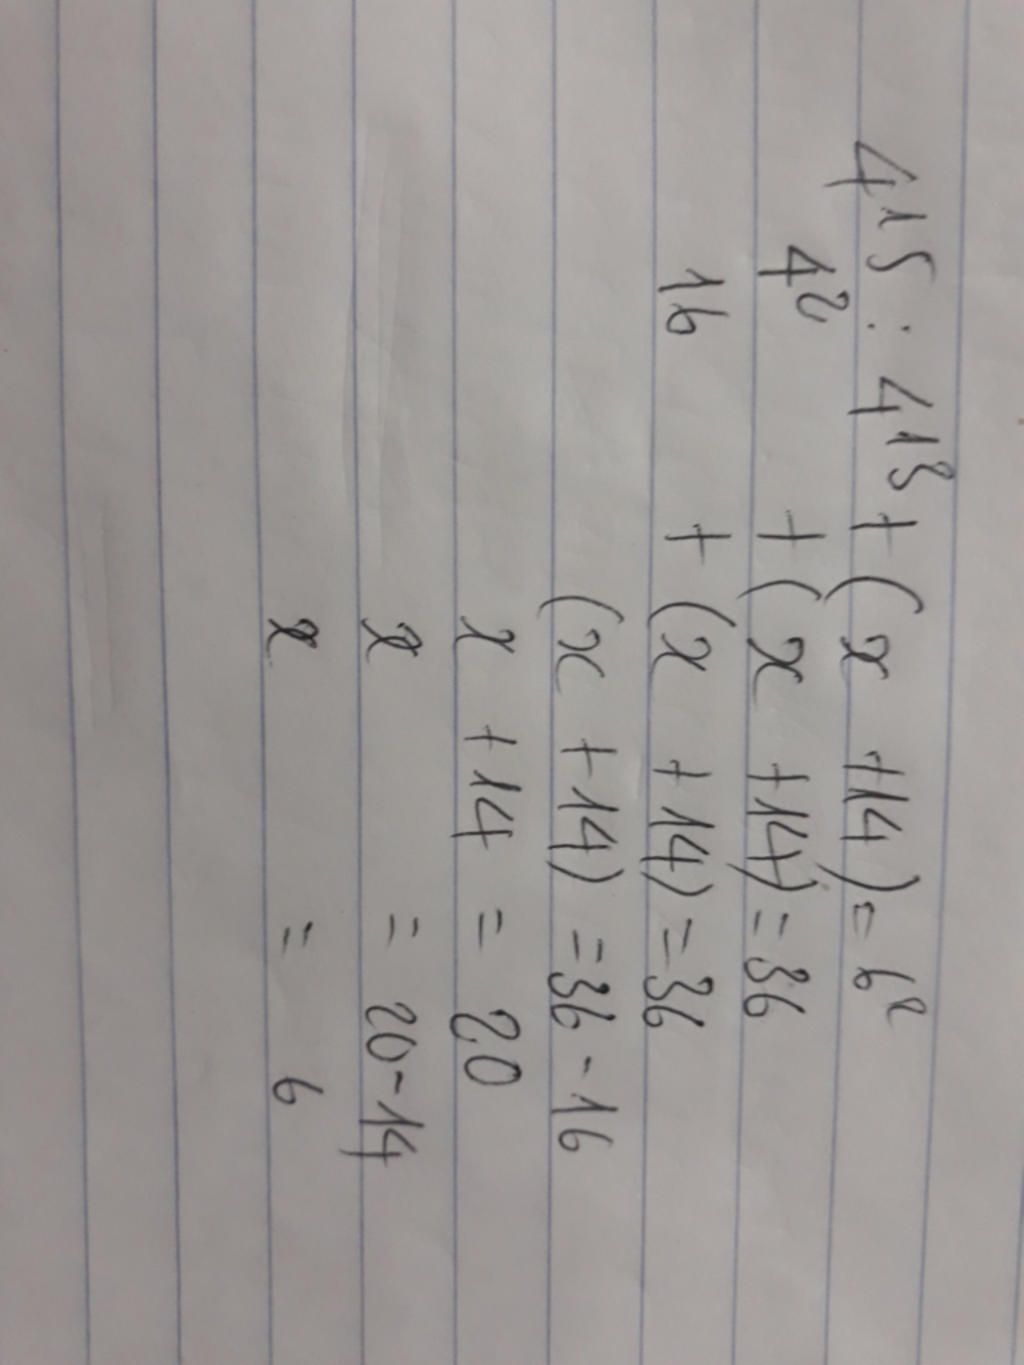 4¹⁵ : 4¹³ + (x + 14) = 6²
4² + (x + 14) = 36
16 + (x + 14) = 36
(x + 14) = 36 - 16
x + 14 = 20
x = 20 - 14
x = 6